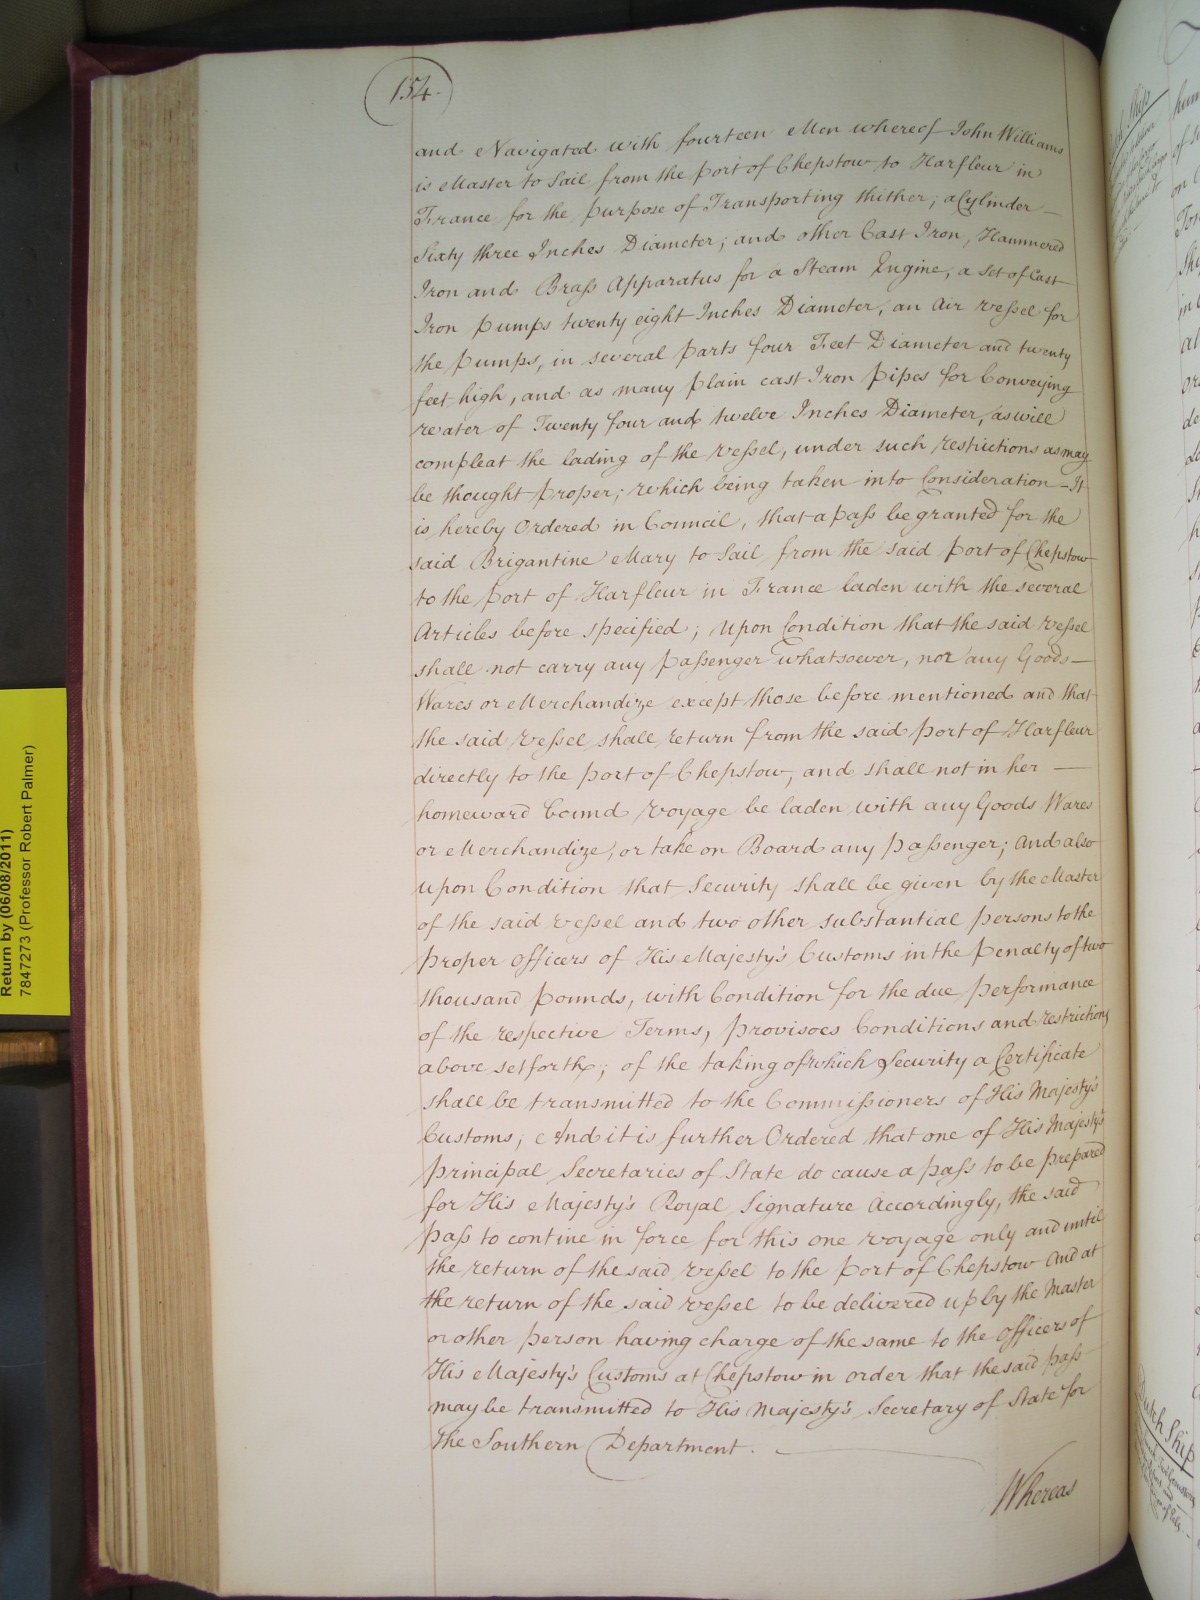 154.
and Navigated with fourteen Men whereof John Williams
is Master to Sail from the Port of Chepstow to Harfleur in
France for the purpose of Transporting thither; a Cylinder
Sixty three Inches Diameter; and other Cast Iron, Hammered
Iron and Brass Apparatus for a Steam Engine, a set of Cast
Iron pumps twenty eight Inches Diameter, an Air vessel for
the pumps, in several parts four Feet Diameter and twenty
feet high, and as many plain cast Iron pipes for Conveying
water of Twenty four and twelve Inches Diameter, as will
compleat the lading of the vessel, under such restrictions as may
be thought proper; which being taken into Consideration - It
is hereby Ordered in Council, that a pass be granted for the
said Brigantine Mary to Sail from the said port of Chepstow
to the port of Harfleur in France laden with the several
Articles before specified; upon Condition that the said vessel
shall not carry any passenger whatsoever, nor any Goods
Wares or Merchandize except those before mentioned and that
the said vessel shall return from the said port of Harfleur
directly to the port of Chepstow, and shall not in her
homeward bound voyage be laden with any Goods Wares
or Merchandize, or take on Board any passenger; and also
upon Condition that Security shall be given by the Master
of the said vessel and two other substantial persons to the
proper officers of His Majesty's Customs in the penalty of two
thousand pounds, with Condition for the due performance
of the respective Terms, provisoes Conditions and restrictions
above setforth; of the taking of which Security a Certificate
shall be transmitted to the Commissioners of His Majesty's
Customs; And it is further Ordered that one of His Majesty's
principal Secretaries of State do cause a pass to be prepared
for His Majesty's Royal Signature Accordingly, the said
pass to contine in force for this one voyage only and until
the return of the said vessel to the port of Chepstow And at
the return of the said vessel to be delivered up by the Master
or other person having charge of the same to the officers of
His Majesty's Customs at Chepstow in order that the said pass
may be transmitted to His Majesty's Secretary of State for
the Southern Department.
Whereas
Return by (06/08/2011)
7847273 (Professor Robert Palmer)
Dutch Ship